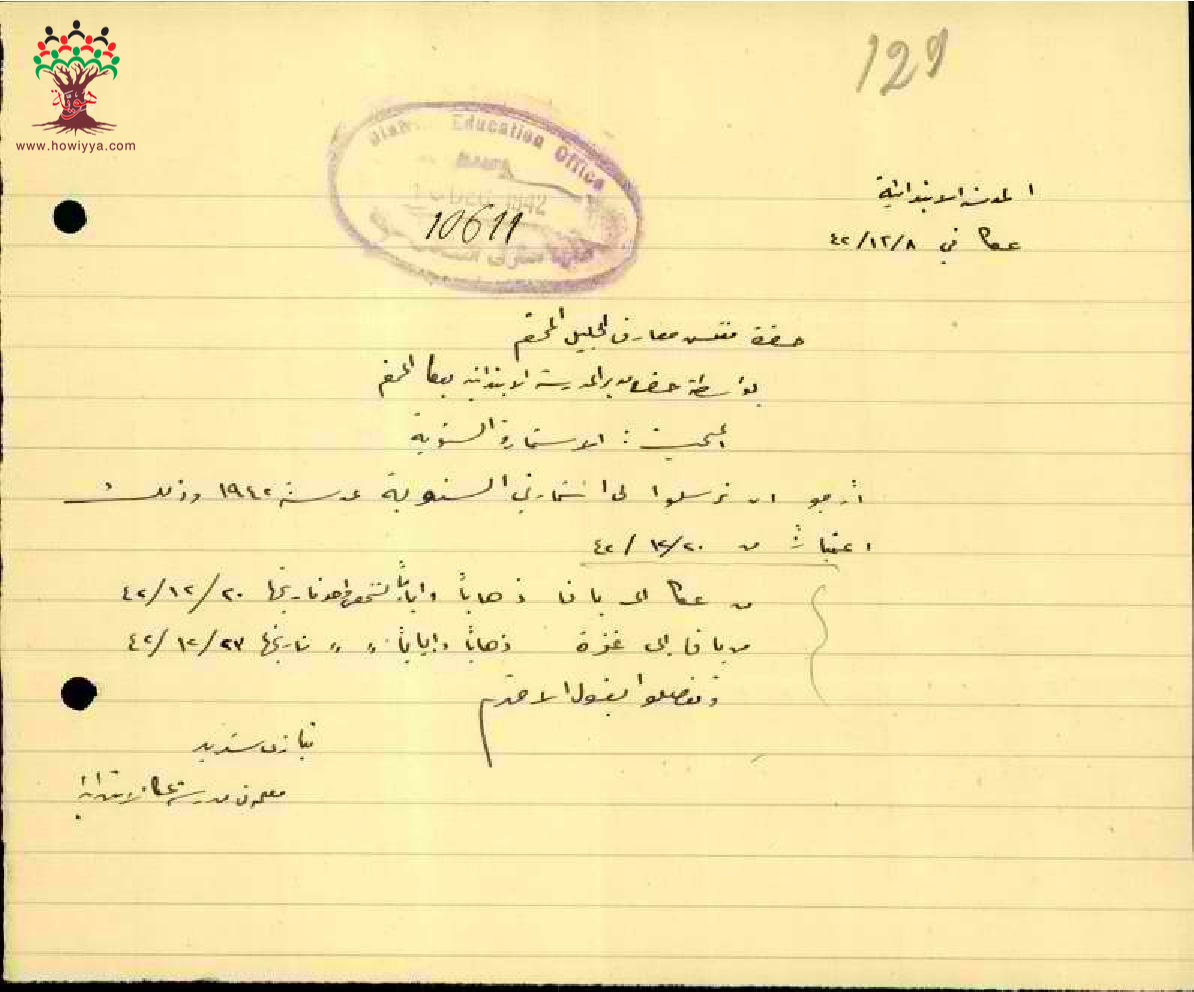 129
هوية
www.howiyya.com
District Education Office
HAIFA
DEC 1942
10611
المدرسة الابتدائية
عكا في ٤٢/١٢/٨
حضرة مفتش معارف الجليل المحترم
بواسطة حضرة مدير المدرسة الابتدائية بعكا المحترم
المبحث : الاستمارة السنوية
أرجو ان ترسلوا لي استمارتي السنوية عن سنة ١٩٤٢ وذلك
اعتباراً من ٤٢/١٢/٢٠
من عكا الى يافا ذهاباً واياباً لشخص واحد تاريخها ٤٢/١٢/٢٠
من يافا الى غزة ذهاباً واياباً " " تاريخها ٤٢/١٢/٢٣
وتفضلوا بقبول الاحترام
معلم في مدرسة عكا الابتدائية